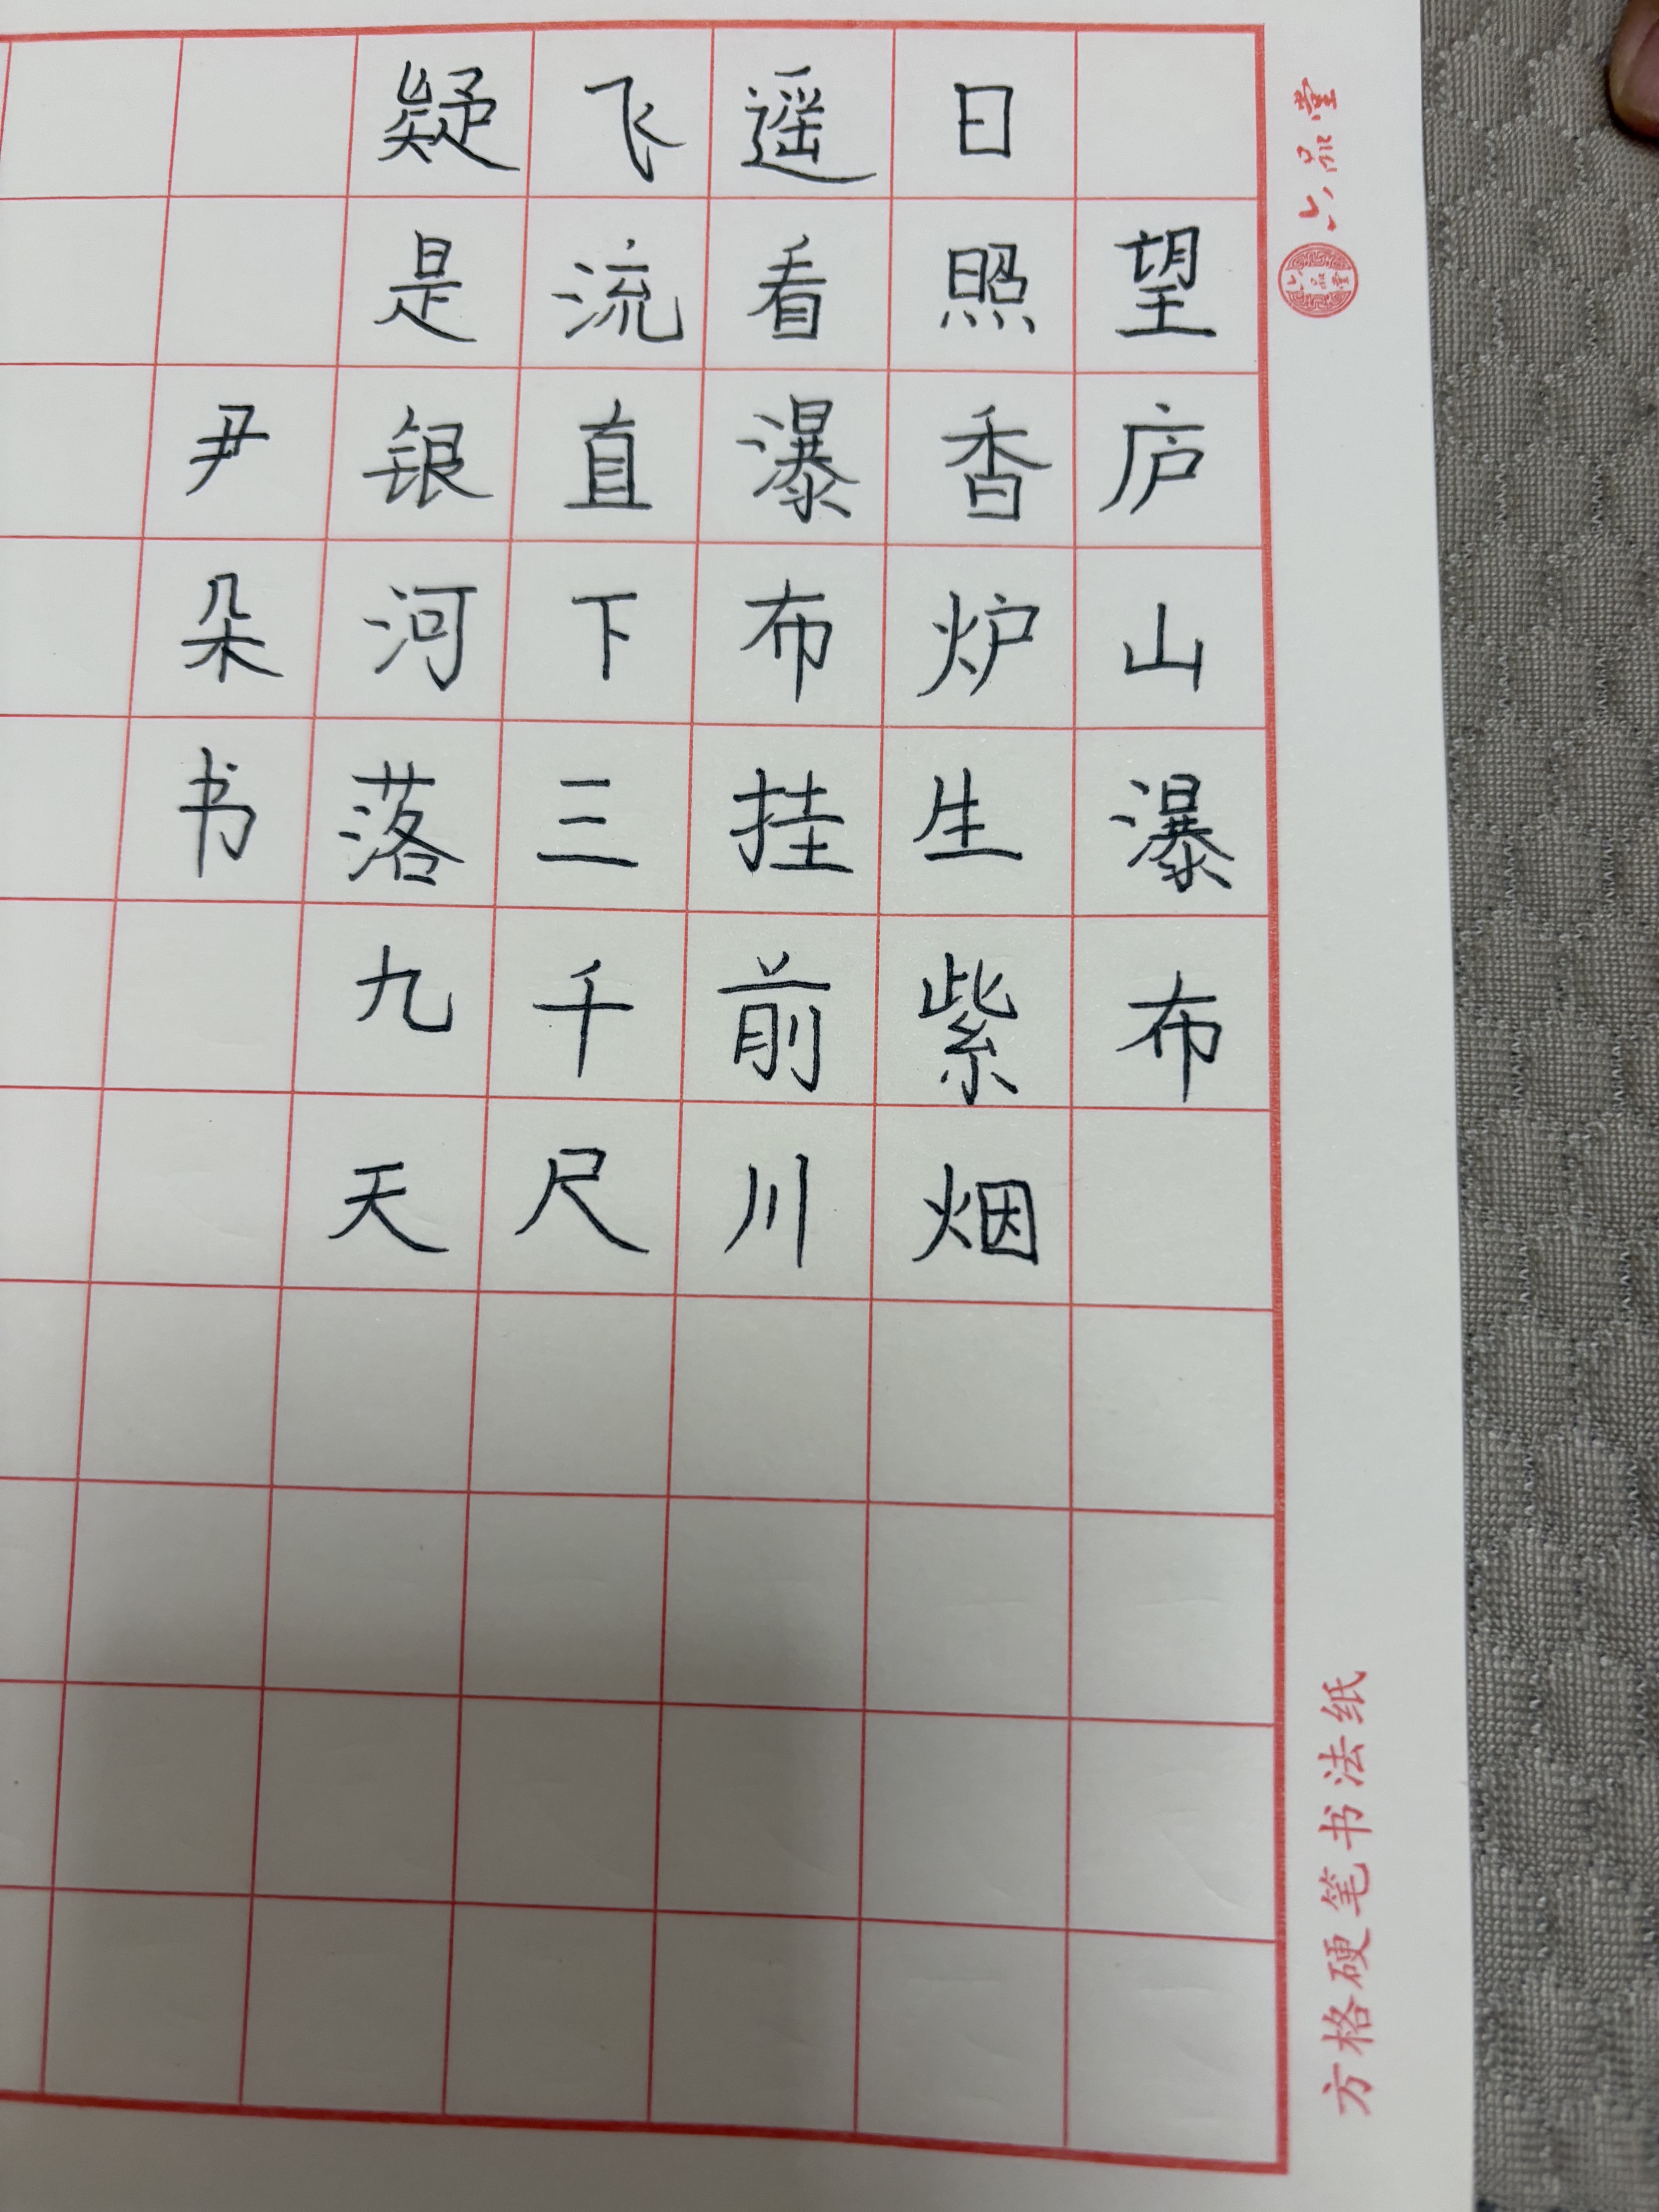 望庐山瀑布
日照香炉生紫烟
遥看瀑布挂前川
飞流直下三千尺
疑是银河落九天
尹朵书
六品堂
六品堂
方格硬笔书法纸